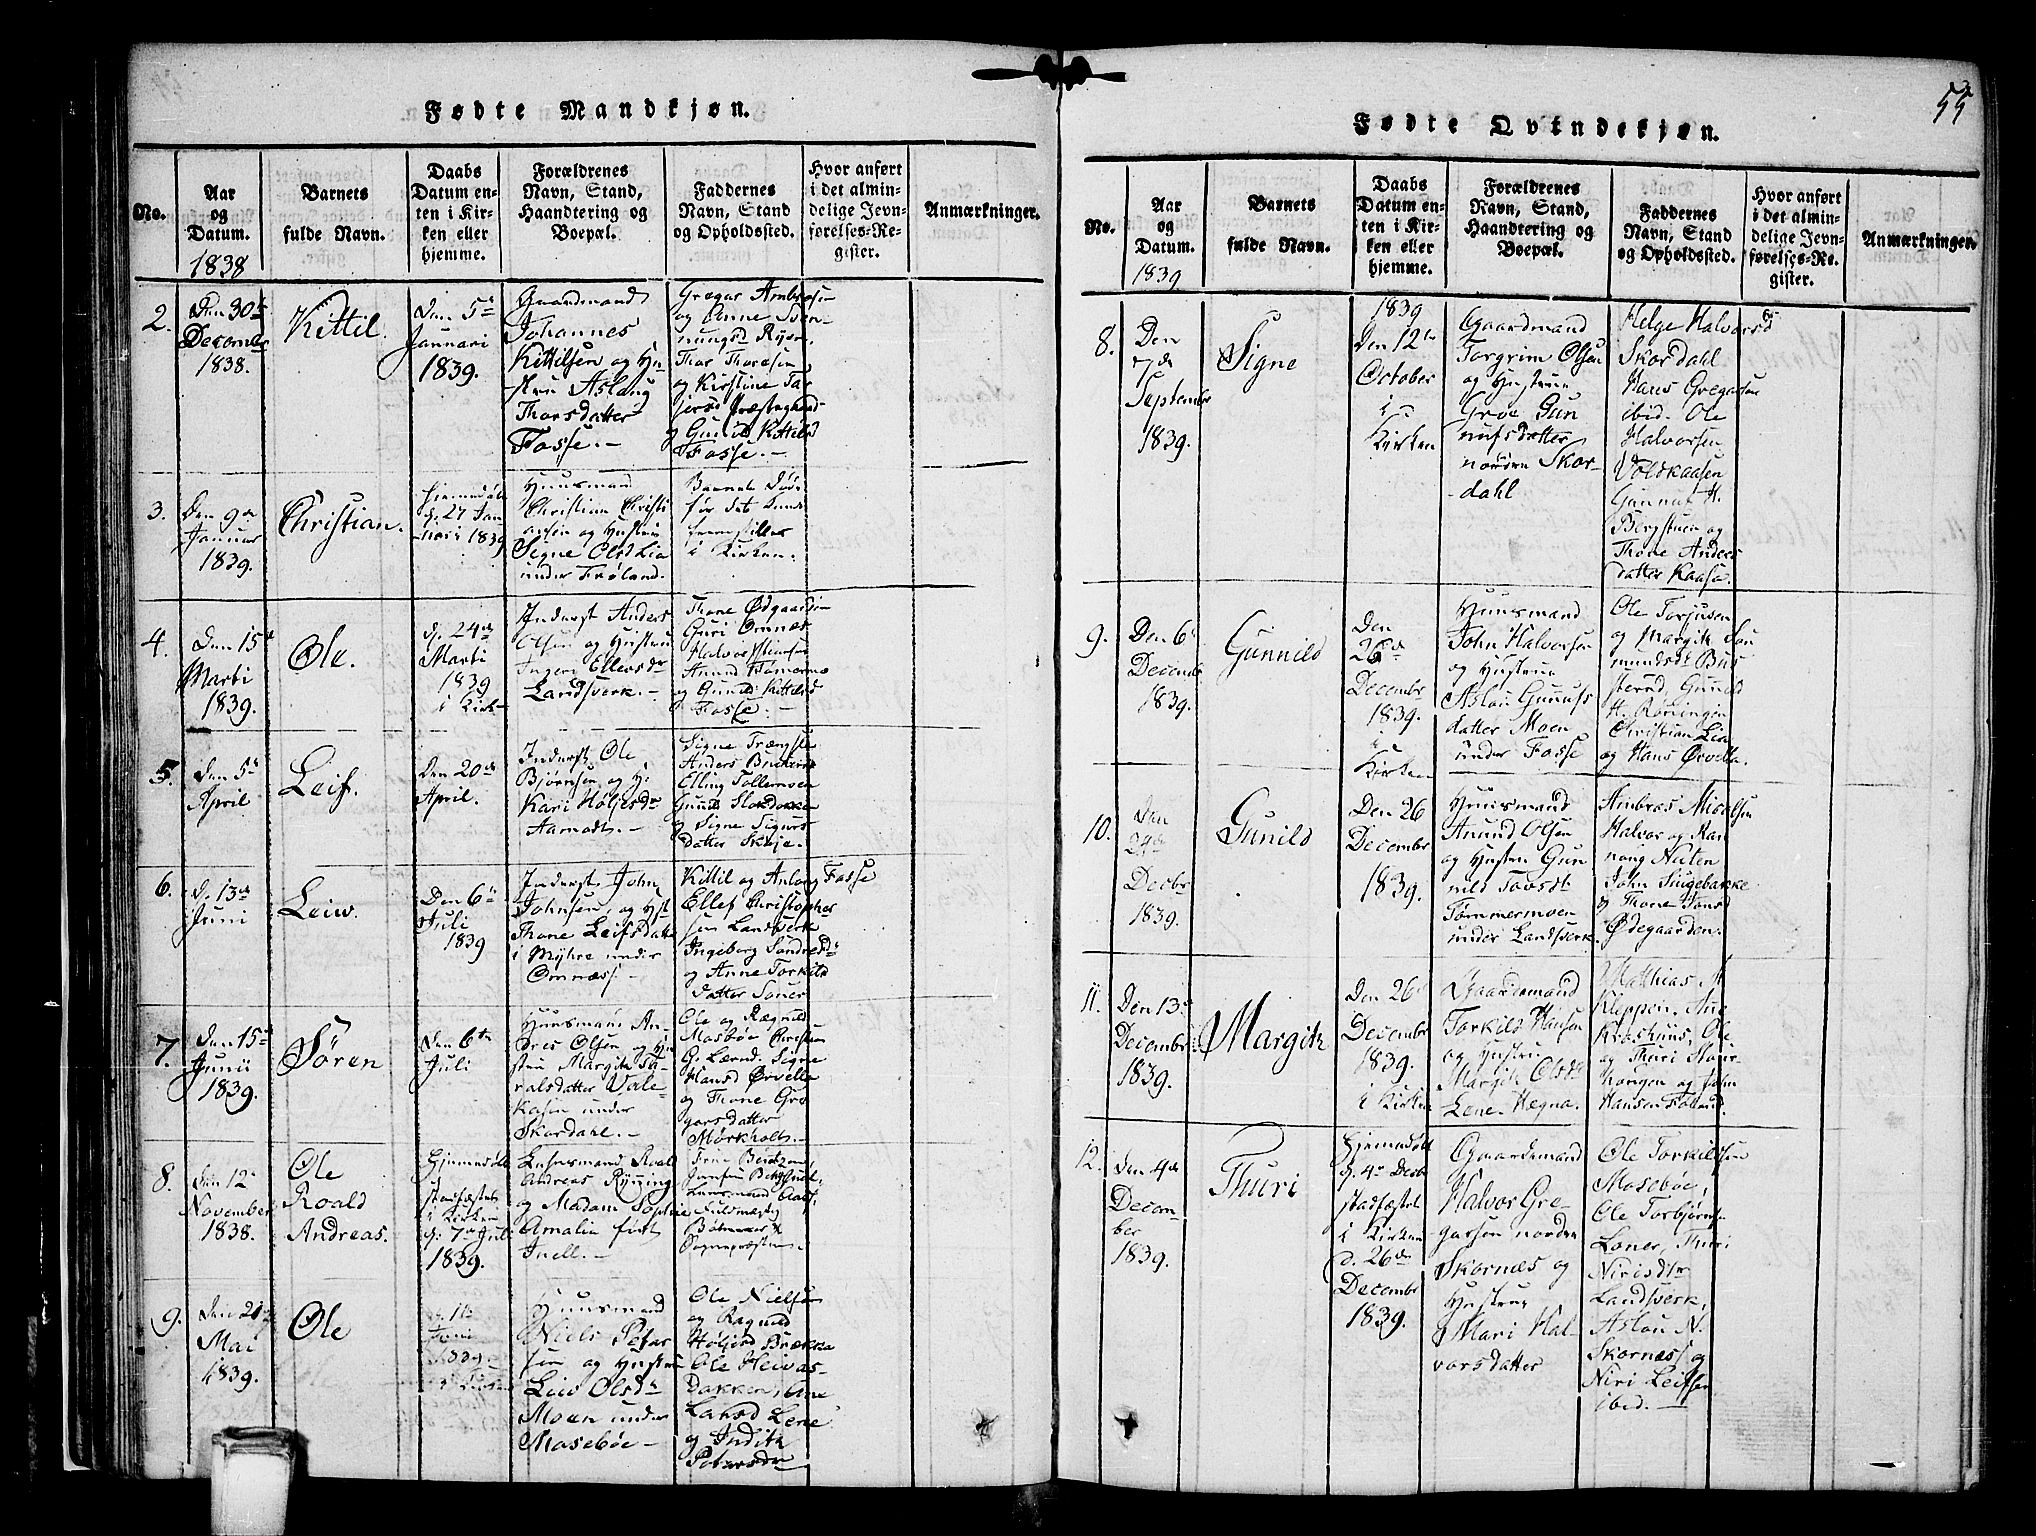 55
Fødte Mandkjøn.
No.
Aar
og
Datum.
1838
Barnets
fulde Navn.
Daabs
Datum en-
ten i Kir-
ken eller
hjemme.
Forældrenes
Navn, Stand,
Haandtering og
Boepæl.
Faddernes
Navn, Stand
og Opholdssted.
Hvor anført
i det almin-
delige Jevn-
førelses-Re-
gister.
Anmærkninger.
2.
Den 30te
Decemer
1838.
Kittil.
Den 5te
Januari
1839.
Gaardmand
Johannes
Kittilsen og Hu-
stru Aslaug
Thorsdatter
Fosse.-
Gregar Ambrosen
og Anne Sven-
nungsd Ryen,
Thor Thoresen
og Kirstine Tar
jersd
og Gunild Kittilsd
Fosse.-
3.
Den 9de
Januar
1839.
Christian.
Hjemmedøbt
d. 27 Jan
uari 1839
Huusmand
Christian Christi
ansen og Hustru
Signe Olsd Lia
under Frøland.
Barnet døde
før det kunde
fremstilles
i Kirken.
4.
Den 15de
Marti
1839.
Ole.
d. 24de
Marti
1839
i Kirk
Inderst Anders
Olsen og Hustru
Ingera Ellevsdr
Landsverk.-
Thone Ødgaarden
Guri Omnæs
Halvor
Anund
og Gunild Kittilsd
Fosse.-
5.
Den 5te
April
Leif.
Den 20de
April.
Inderst Ole
Bjørnsen og H.
Kari Høljesdr
Aarnodt.-
Signe
Anders
Elling Tollernoen
Gunild Slokdokka
og Signe Sigurs
datter Skeje.-
6.
d. 13de
Juni
Leiw.
Den 6te
Juli
1839
Inderst John
Johnsen, og Hst
Thone Leifsdatter
i Myhre under
Omnæss.-
Kittil og Anlong Fosse
Ellef Christopher
sen Landverk
Ingeborg Sondresdr
og Anne Torkilds
datter Soner
7.
Den 15de
Junii
1839.
Sören
Den 6te
Juli
Huusmand An-
dres Olsen og Hu
stru Margith Ta-
ralsdatter Vale-
kasen under
Skordahl.-
Ole og Ragnild
Mosebøe Christen
G. Lernd. Signe
Hansd Ørvella
og Thone Gre
garsdatter
Mørkholt.-
8.
Den 12te
November
1838.
Ole
Roald
Andreas.
Hjemmedøbt
stadfæstet
i Kirken
d. 7de Juli
1839.
Lehnsmand Roald
Andreas Rynning
og Madam Sophie
Amalia født
Juell.-
Frue Bentzen,
Lensmand Aall,
Fuldmægtig
Sognepræsten.-
9.
Den 21de
Mai
1839.
Ole
Huusmand
Niels Peter
sen og Hustru
Leiw Olsdr
Moen under
Mosebøe-
Ole Nielsen
og Ragnild
Høljesd Brækka
Ole Heivas-
Dakken, Ane
Larsd Lene
og Judith
Petersdr
Fødte Qvindekjøn.
No.
Aar
og
Datum.
1839
Barnets
fulde Navn.
Daabs
Datum en-
ten i Kir-
ken eller
hjemme.
Forældrenes
Navn, Stand,
Haandtering og
Boepæl.
Faddernes
Navn, Stand
og Opholdssted.
Hvor anført
i det almin-
delige Jevn-
førelses-Re-
gister.
Anmærkninger.
8.
Den
7de
September
1839.
Signe
1839
Den 12te
October
i
Kirken
Gaardmand
Torgrim Olsen
og Hustrue
Groe Gun
nufsdatter
nordre Skor-
dahl
Helge Halvorsd
Skordahl
Hans Gregarsen
ibid. Ole
Halvorsen
Voldkaasen
Gunnar H.
Bergstuen og
Thone Anders
datter Kaasa.
9.
Den 6te
December
1839.
Gunnild
Den
26de
December
1839.
i
Kirken
Huusmand
John Halvorsen
og Hustrue
Aslau Gunnufs
datter Moen
under Fosse
Ole Torjusen
og Margith Sau
mundsdr Bus
sterud, Gunild
H. Rønningen
Christian Lia
og Hans Ørvella.
10.
Den
24de
Decbr
1839.
Gunild
Den 26
Decembr
1839.
Huusmand
Anund Olsen
og Hustru Gun
nild Tovsdr
Tømmermoen
under Landsverk.
Ambros Micalsen
Halvor og Ran
naug Nuten
John Slugebække
og Thone Tonsd
Ødegaarden.
11.
Den 13de
December
1839.
Margith
Den 26de
December
1839.
i Kirken
Gaardemand
Torkild Hansen
og Hustru
Margith Olsdr
Lene-Hægna.
Mathias A.
Kleppen, Ane
Krashuus, Ole
og Thuri Maur-
hougen og John
Hansen Folland.
12.
Den 4de
Decem-
ber
1839.
Thuri
Hjemmedøbt
d. 4de Decbr
stadfæstet
i Kirken
d. 26de
December
1839.
Gaardemand
Halvor Gre-
garsen nordre
Skornæs og
Hustrue
Mari Hal-
vorsdatter
Ole Torkildsen
Mosebøe,
Ole Torbjørns.
Loner, Thuri
Nirisdtr
Landsverk,
Aslau N.
Skornæss og
Niri Leifsen
ibid.-